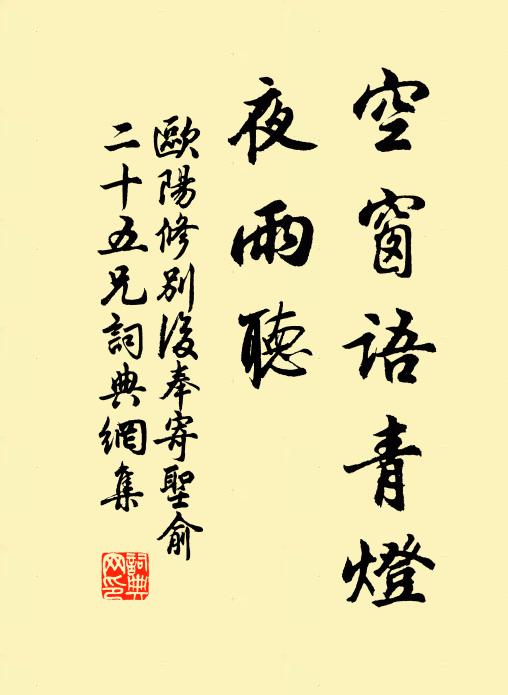 空窗語青燈
夜雨聽
歐陽修別後奉寄聖俞
二十五兄詞典網集
詞典
网印